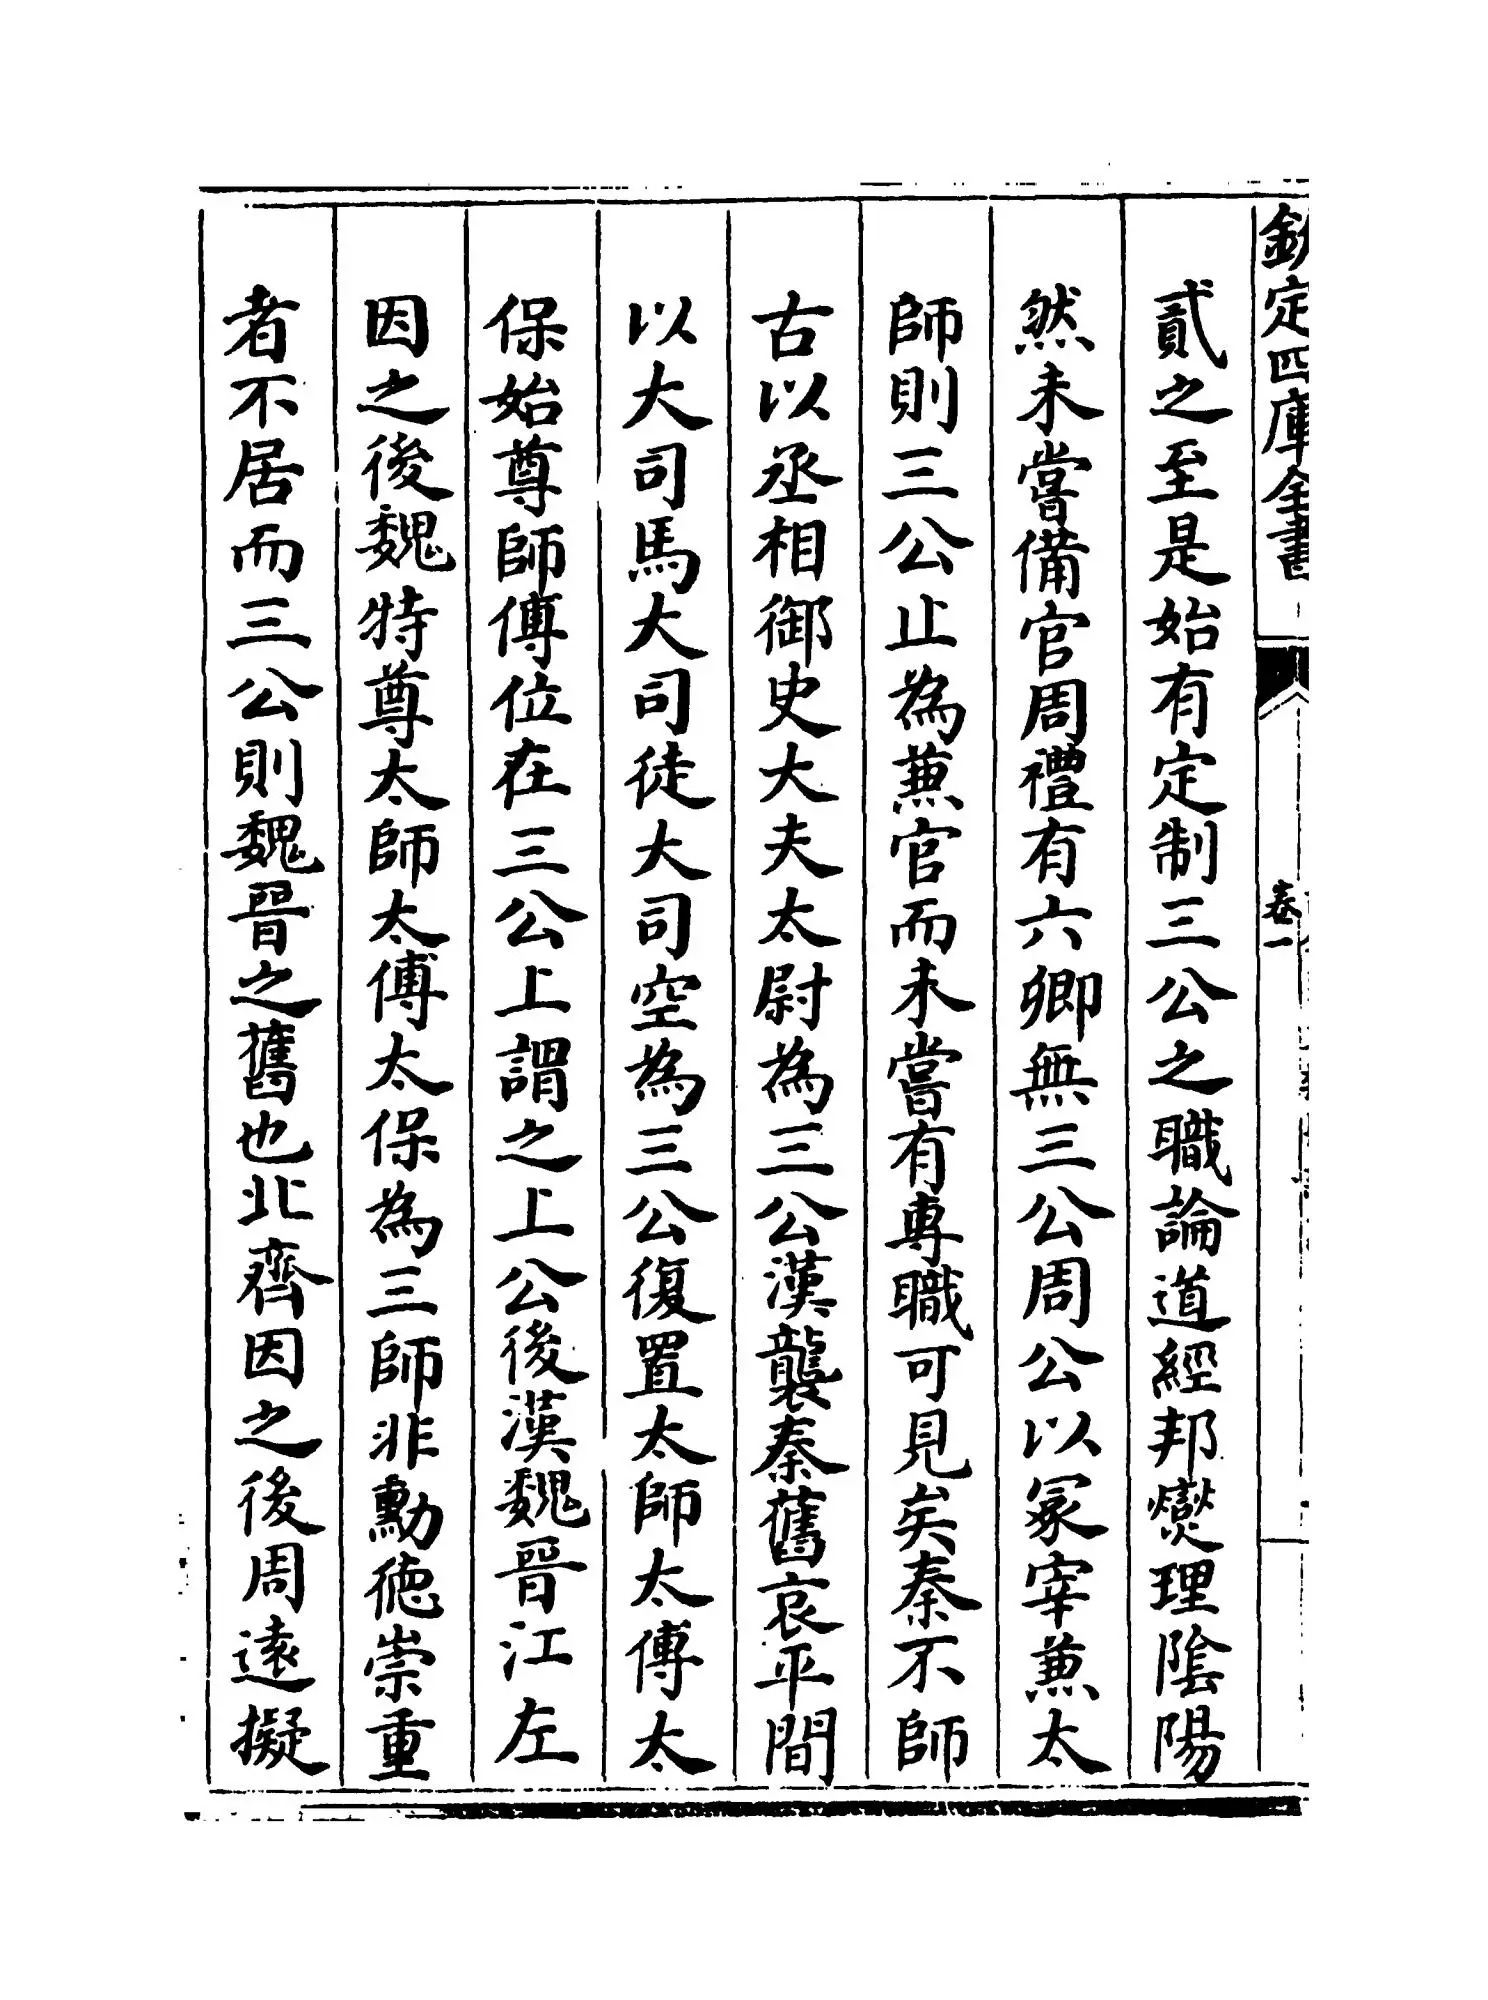 欽定四庫全書
卷一
貳之至是始有定制三公之職論道經邦爕理隂陽
然未嘗備官周禮有六卿無三公周公以冢宰蒹太
師則三公止為蒹官而未嘗有專職可見矣秦不師
古以丞相御史大夫太尉為三公漢襲秦舊哀平間
以大司馬大司徒大司空為三公復置太師太傅太
保始尊師傅位在三公上謂之上公後漢魏晉江左
因之後魏特尊太師太傅太保為三師非勳徳崇重
者不居而三公則魏晉之舊也北齊因之後周逺擬